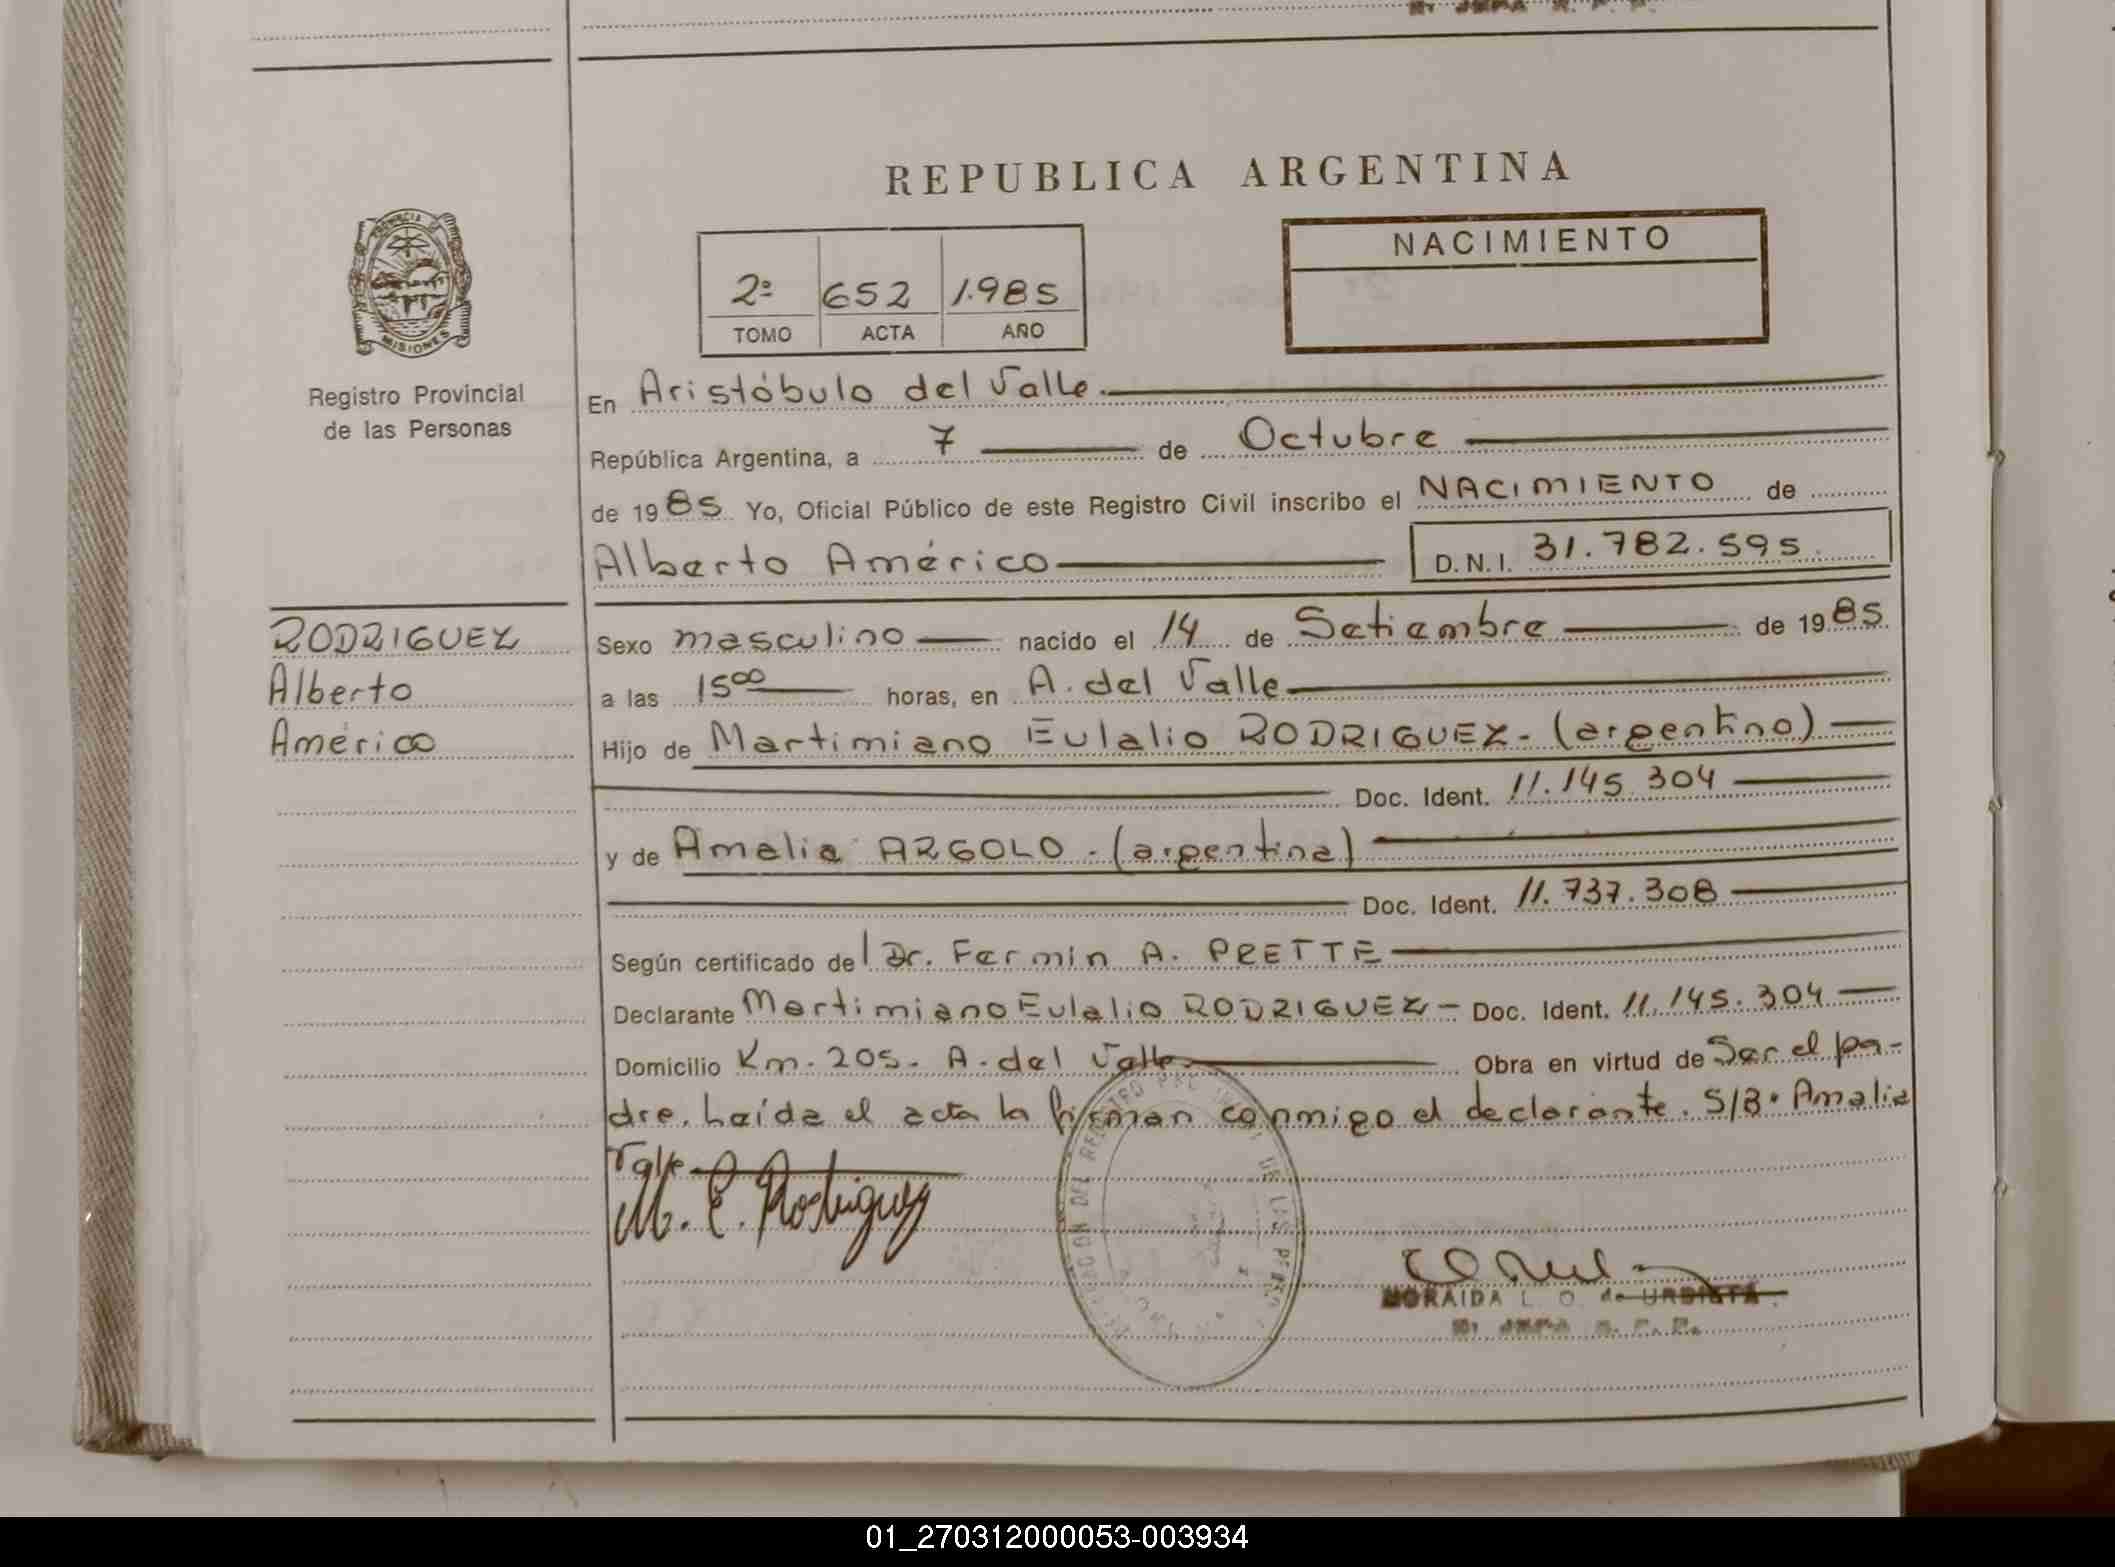 REPUBLICA ARGENTINA
PROVINCIA DE
MISIONES
Registro Provincial
de las Personas
2º 652 1.985
TOMO ACTA AÑO
NACIMIENTO
En Aristóbulo del Valle.
República Argentina, a 7 de Octubre
de 1985 Yo, Oficial Público de este Registro Civil inscribo el NACIMIENTO de
Alberto Américo D.N.I. 31.782.595
RODRIGUEZ
Alberto
Américo
Sexo masculino nacido el 14 de Setiembre de 1985
a las 1500 horas, en A. del Valle
Hijo de Martimiano Eulalio RODRIGUEZ - (argentino)
Doc. Ident. 11.145.304
y de Amalia ARGOLO - (argentina)
Doc. Ident. 11.737.308
Según certificado del Dr. Fermin A. PRETTE
Declarante Martimiano Eulalio RODRIGUEZ - Doc. Ident. 11.145.304
Domicilio Km. 205. A. del Valle Obra en virtud de Ser el pa-
dre. Leída el acta la firman conmigo el declarante. S/B. Amalia
Vale
M. E. Rodriguez
NORAIDA L. O. de URBIETA
01_270312000053-003934